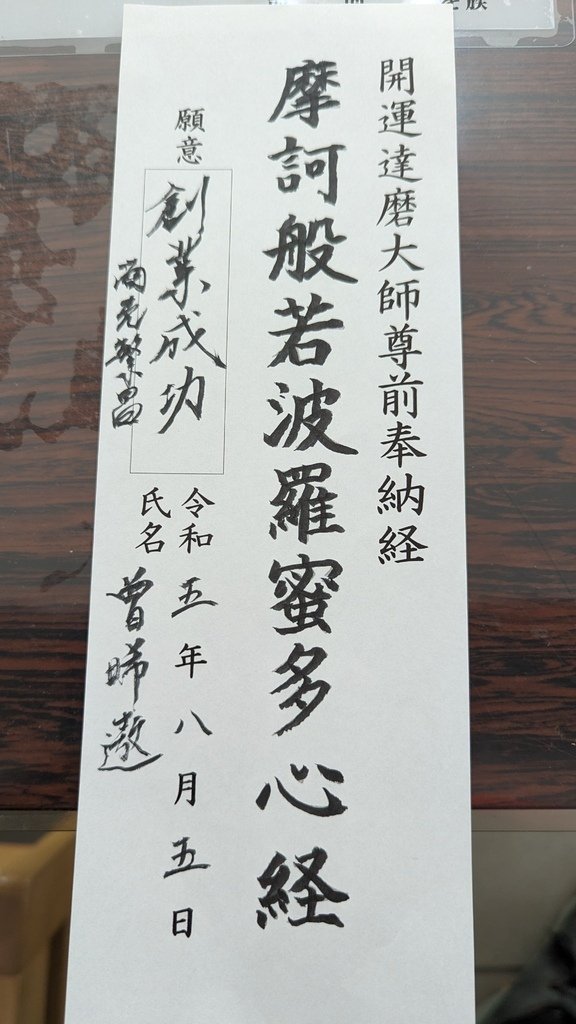 開運達磨大師尊前奉納経
摩訶般若波羅蜜多心経
願意
創業成功
商売繁昌
令和五年八月五日
氏名 曾晞遨
族